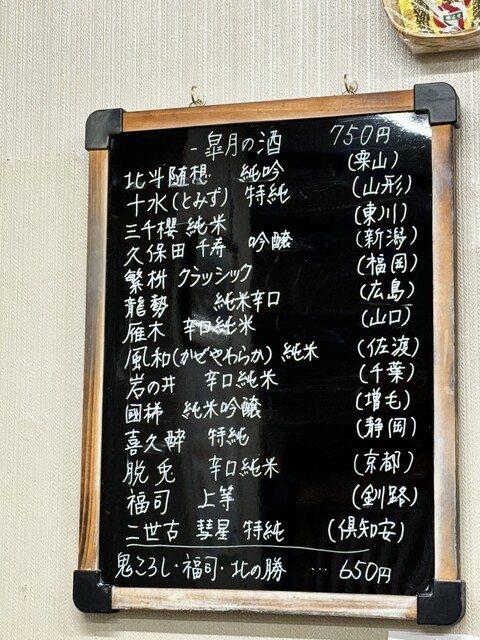 - 皐月の酒 750円
北斗随想 純吟 (栗山)
十水(とみず) 特純 (山形)
三千櫻 純米 (東川)
久保田 千寿 吟醸 (新潟)
繁桝 クラッシック (福岡)
龍勢 純米辛口 (広島)
雁木 辛口純米 (山口)
風和(かぜやわらか) 純米 (佐渡)
岩の井 辛口純米 (千葉)
國稀 純米吟醸 (増毛)
喜久酔 特純 (静岡)
脱兎 辛口純米 (京都)
福司 上等 (釧路)
二世古 彗星 特純 (倶知安)
鬼ころし・福司・北の勝 … 650円